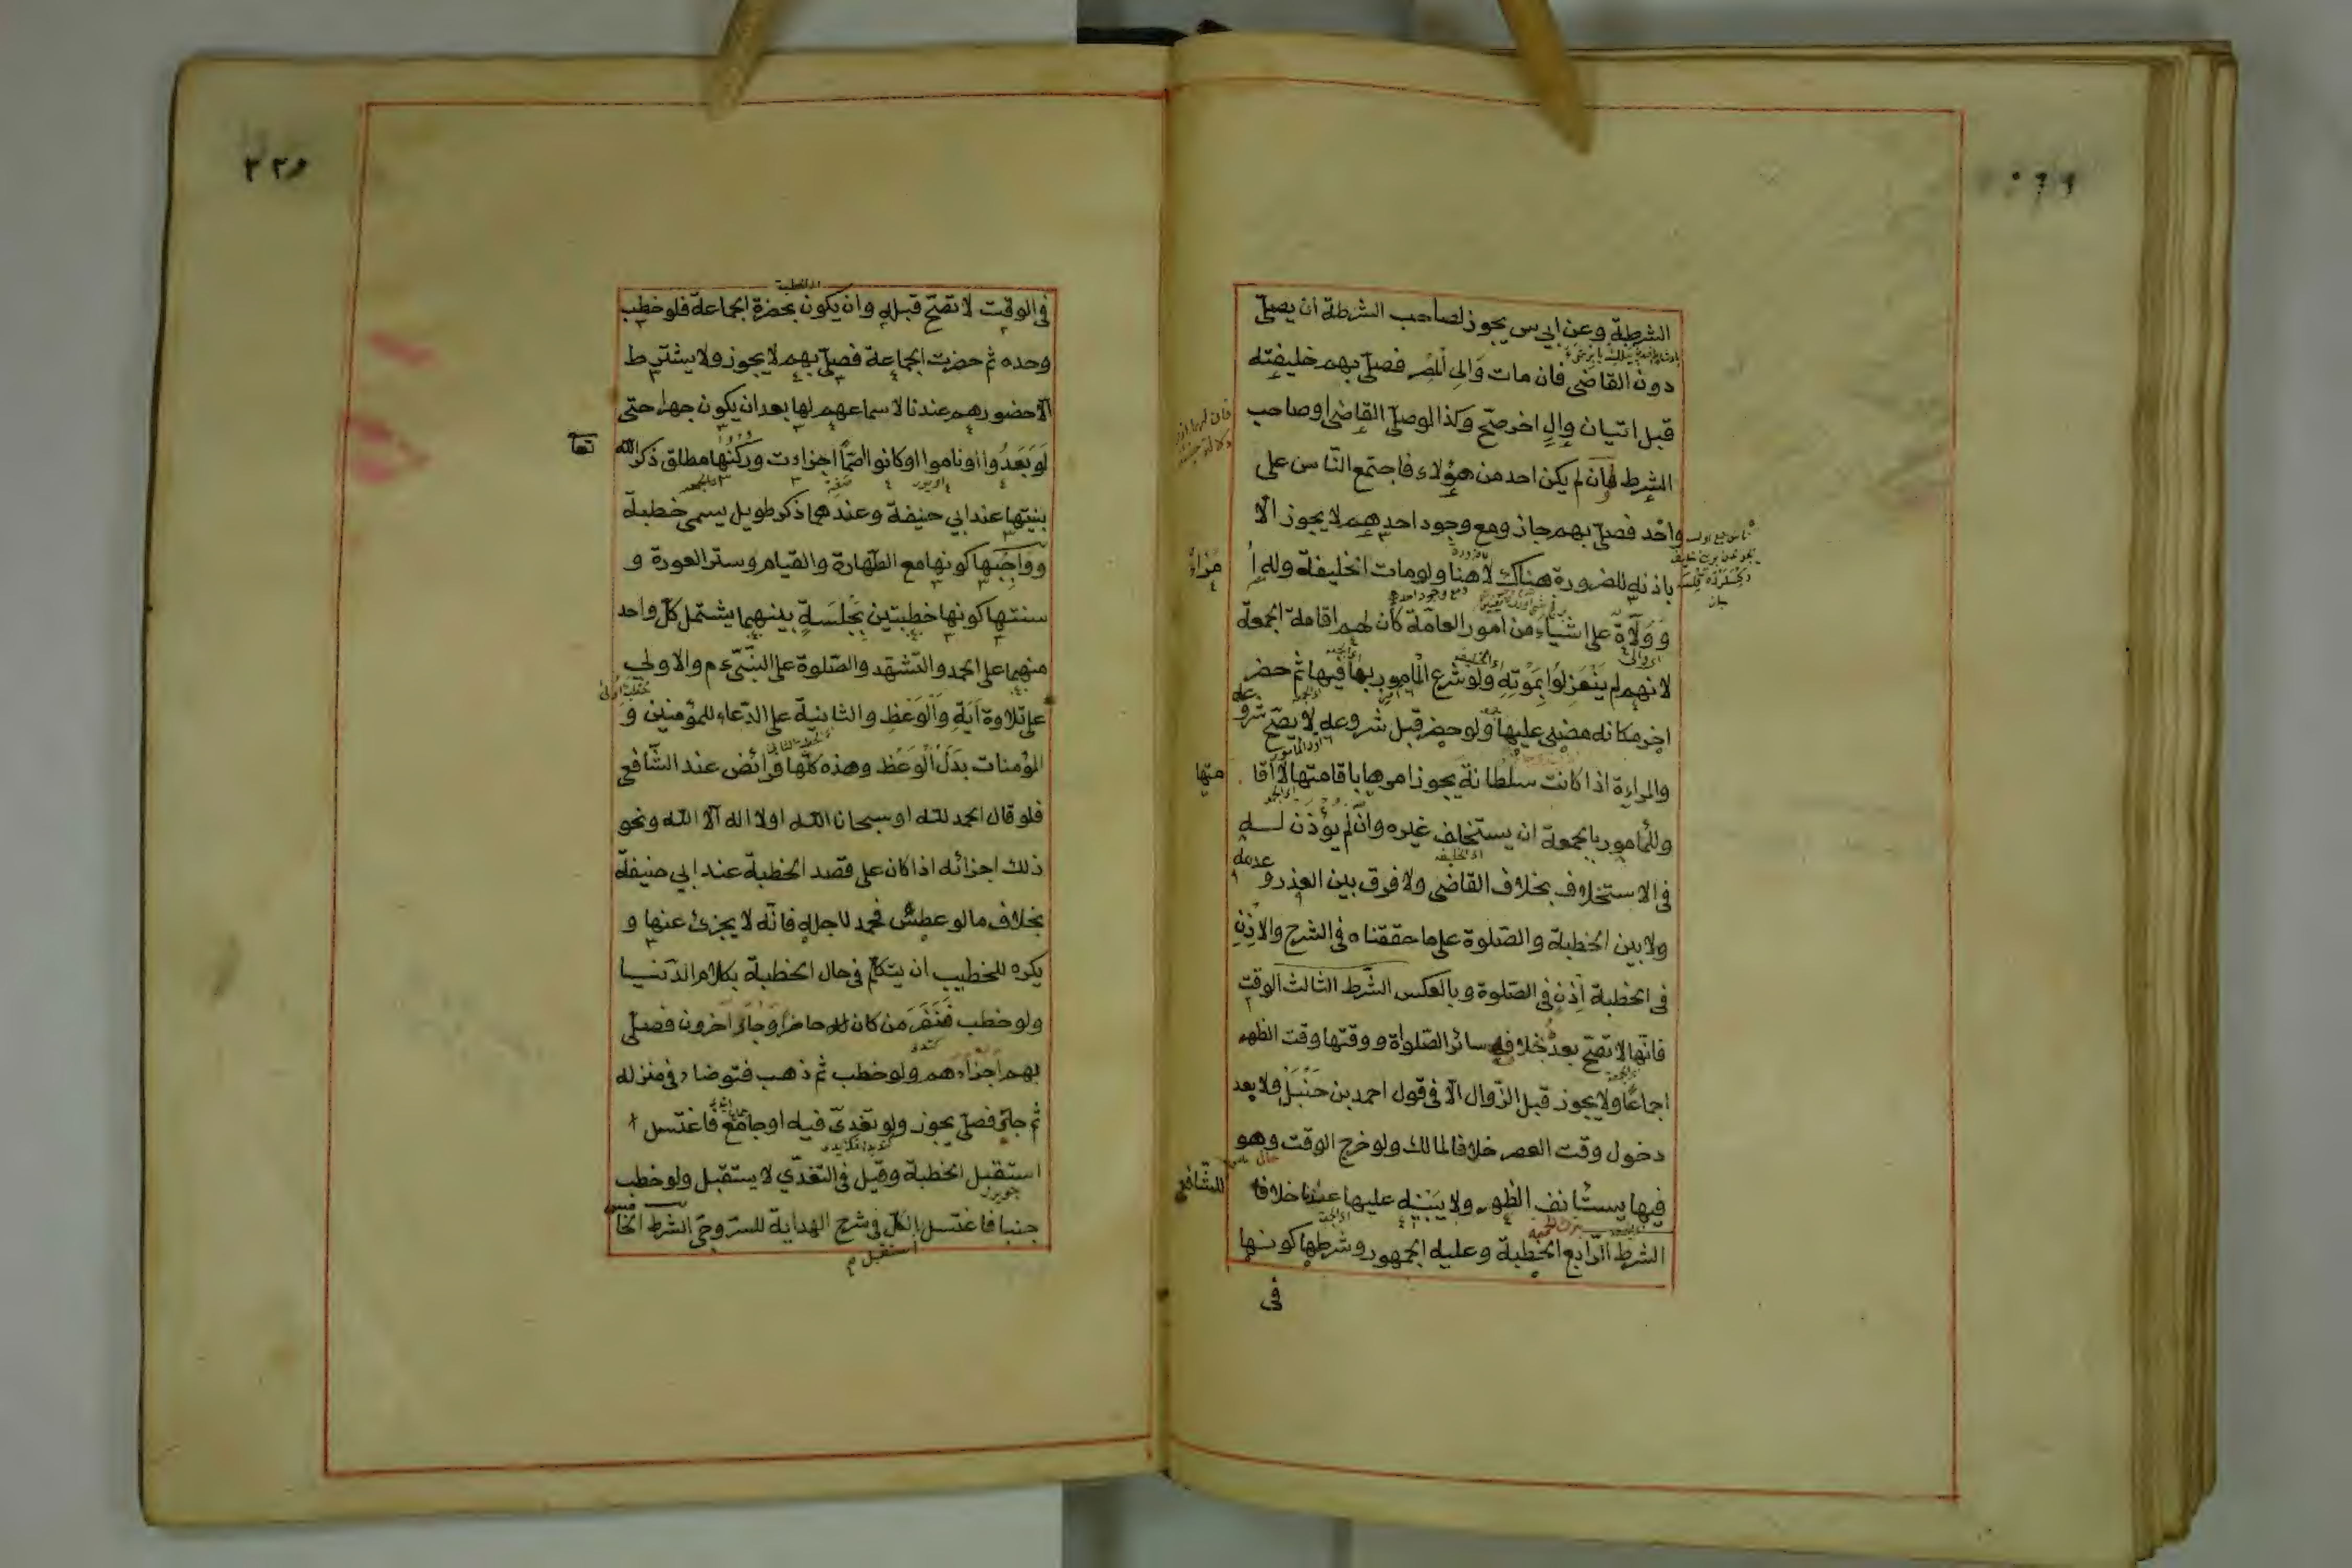 الشرطة وعن ابي س يجوز لصاحب الشرطة ان يصلّى
دون القاضى فان مات وَالِى المِصْرِ فصلّى بهم خليفته
قبل اتيان والٍ اخر صحّ وكذا لو صلّى القاضى او صاحب
الشرط فان لم يكن احد من هؤلاء فاجتمع النّاس على
واحد فصلّى بهم جاز ومع وجود احدهم لا يجوز الّا
باذنه للضرورة هناك لا هنا ولو مات الخليفة وله اُ
مَرَاءُ
وَوَلَاة على اشياء من امور العامّة كان لهم اقامة الجمعة
لانهم لم يَنْعَزِلُوا بِمَوْتِهِ ولو شرع المأمور بها فيها ثم حضر
اخر مكانه مضى عليها ولو حضر قبل شروعه لا يصحّ شرو
عه
والمراءة اذا كانت سلطانة يجوز امرها باقامتها لا اقا
متها
وللمأمور بالجمعة ان يستخلف غيره وان لم يُؤْذَن له
فى الاستخلاف بخلاف القاضى ولا فرق بين العذر و
عدمه
ولا بين الخطبة والصّلوة على ما حققناه فى الشرح والاذن
فى الخطبة اِذن فى الصّلوة وبالعكس الشّرط الثالث الوقت
فانّها لا تصحّ بعده خلاف سائر الصّلواة ووقتها وقت الظهر
اجماعًا ولا يجوز قبل الزّوال الّا فى قول احمد بن حَنْبَلْ ولا بعد
دخول وقت العصر خلافا لمالك ولو خرج الوقت وهو
فيها يستأنف الظهر ولا يبنيه عليها عندنا خلافا
للشّافعى
الشرط الرّابع الخطبة وعليه الجمهور وشرطها كونها
فى
فى الوقت لا تصحّ قبله وان يكون بحضرة الجماعة فلو خطب
وحده ثم حضرت الجماعة فصلّى بهم لا يجوز ولا يشترط
الّا حضورهم عندنا لا سماعهم لها بعد ان يكون جهرا حتى
لَوْ بَعَدُوا او ناموا او كانوا اصمًّا اجزاءت وركنها مطلق ذكر الله
تعا
بنيتها عند ابي حنيفة وعندهما ذكر طويل يسمى خطبة
وواجبها كونها مع الطّهارة والقيام وستر العورة و
سنتها كونها خطبتين بِجَلْسَةٍ بينهما يشتمل كلّ واحد
منهما على الحمد والتشهّد والصّلوة على النّبىّ عم والاولى
على تلاوة آيَةٍ وَالْوَعْظِ والثانية على الدّعاء للمؤمنين و
المؤمنات بَدَلَ الْوَعْظِ وهذه كلّها فرائض عند الشّافعى
فلو قال الحمد لله او سبحان الله او لا اله الّا الله ونحو
ذلك اجزائه اذا كان على قصد الخطبة عند ابي حنيفة
بخلاف ما لو عطش فحمد لاجله فانّه لا يجزئ عنها و
يكره للخطيب ان يتكلّم فى حال الخطبة بكلام الدّنيا
ولو خطب فَنَفَرَ من كان حاضرا وجاء اخرون فصلّى
بهم اجزاءهم ولو خطب ثم ذهب فتوضاء فى منزله
ثم جاء فصلّى يجوز ولو تغدىّ فيه او جامع فاغتسل
استقبل الخطبة وقيل فى التّغدّي لا يستقبل ولو خطب
جنبا فاغتسل الكلّ فى شرح الهداية للسّروجىّ الشرط الخا
مس
استقبل